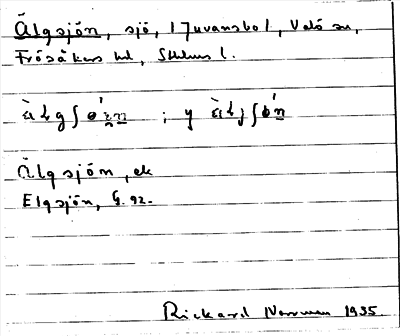 Älgsjön, sjö, i Juvansbol, Valö sn,
Frösåkers hd, Sthlms l.
; y
Älgsjön, ek
Elgsjön, G. 92.
Rickard Norrman 1935.